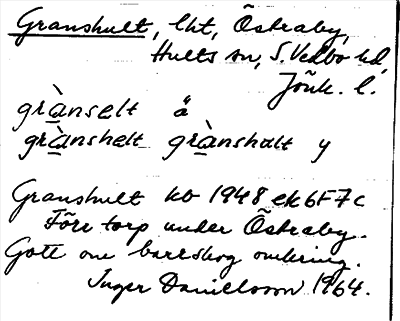 Granshult, lht, Östraby,
Hults sn, S. Vedbo hd,
Jönk. l.
grànselt ä
grànshelt grànshult y
Granshult kb 1948 ek 6F7c
Förr torp under Östraby.
Gott om barrskog omkring.
Inger Danielsson 1964.